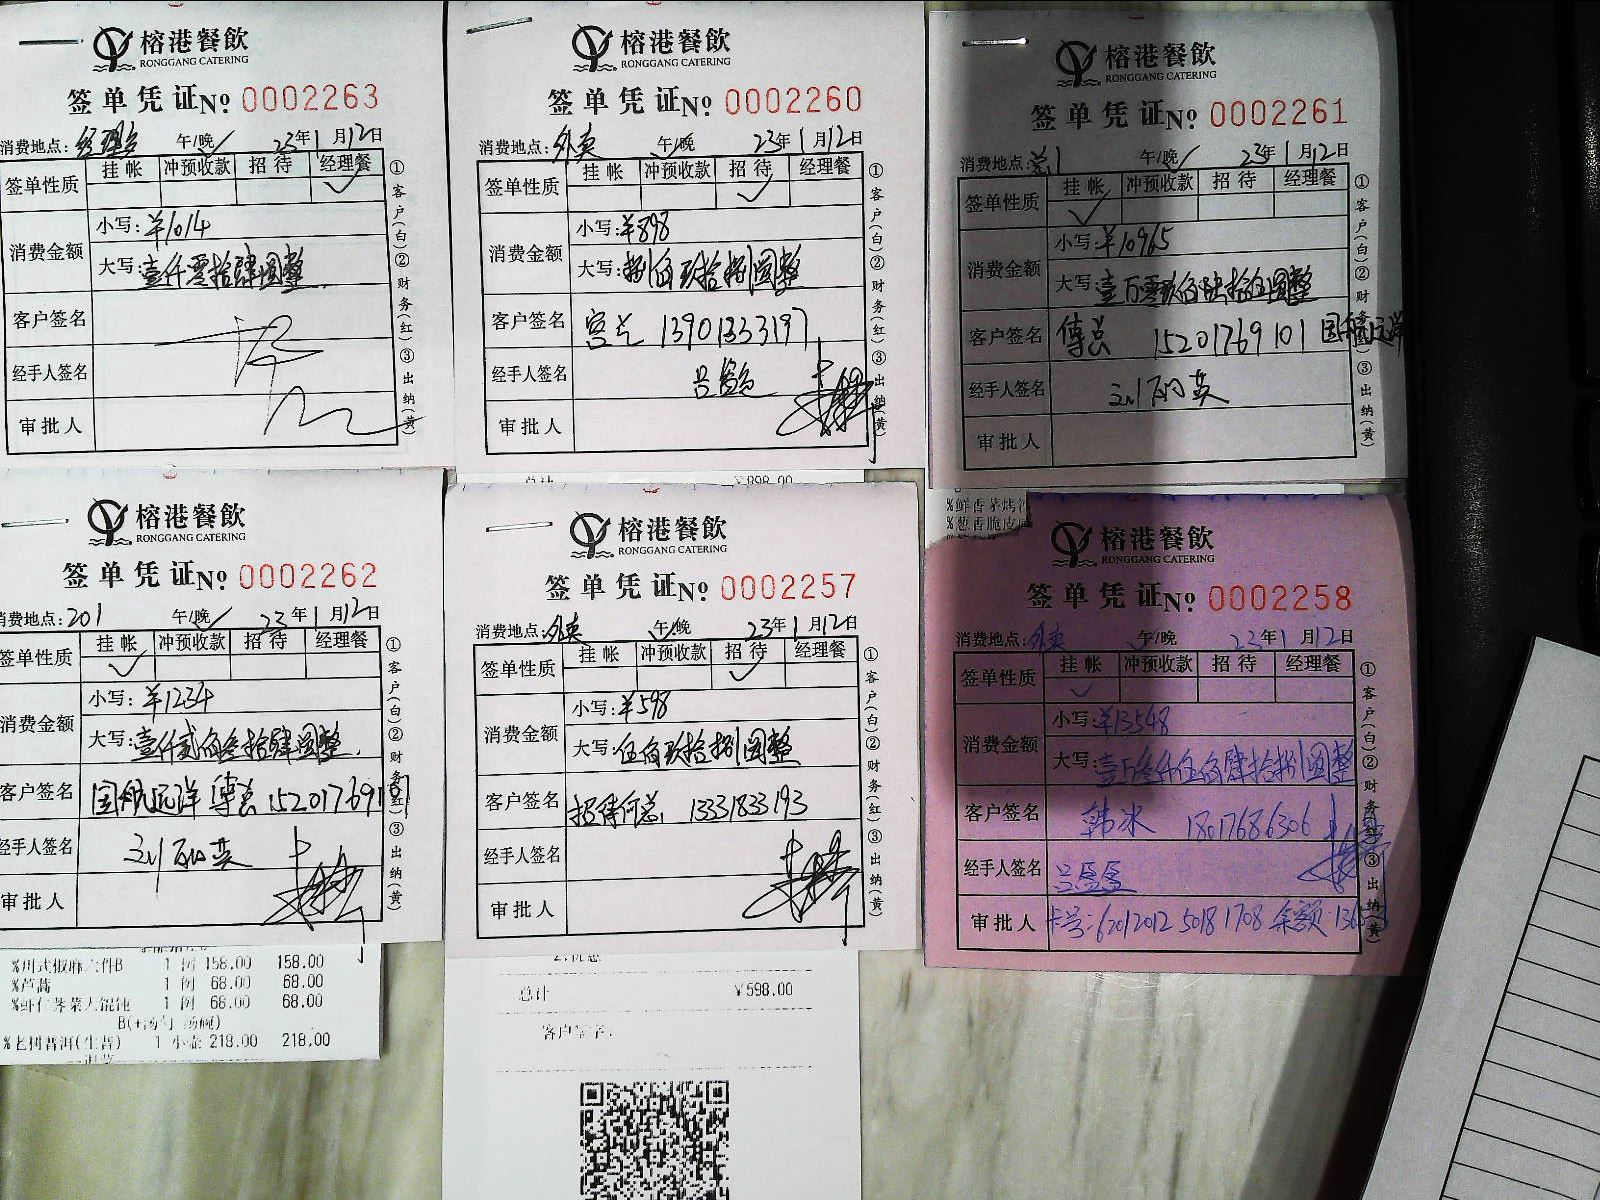 榕港餐飲
RONGGANG CATERING
签单凭证No 0002263
消费地点: 午/晚✓ 23年1月12日
签单性质 挂帐 冲预收款 招待 经理餐
✓
消费金额 小写:¥1014
大写:壹仟零拾肆圆整
客户签名
经手人签名
审批人
①客户(白)②财务(红)③出纳(黄)
榕港餐飲
RONGGANG CATERING
签单凭证No 0002260
消费地点:外卖 午/晚 23年1月12日
签单性质 挂帐 冲预收款 招待 经理餐
✓
消费金额 小写:¥898
大写:捌佰玖拾捌圆整
客户签名 13901333197
经手人签名
审批人
①客户(白)②财务(红)③出纳(黄)
榕港餐飲
RONGGANG CATERING
签单凭证No 0002261
消费地点: 午/晚✓ 23年1月12日
签单性质 挂帐 冲预收款 招待 经理餐
✓
消费金额 小写:¥10965
大写:壹万零玖佰陆拾伍圆整
客户签名 傅总 15201769101 国航远洋
经手人签名 刘丽英
审批人
①客户(白)②财务(红)③出纳(黄)
榕港餐飲
RONGGANG CATERING
签单凭证No 0002262
消费地点:201 午/晚✓ 23年1月12日
签单性质 挂帐 冲预收款 招待 经理餐
✓
消费金额 小写:¥1234
大写:壹仟贰佰叁拾肆圆整
客户签名 国航远洋 傅总 15201769101
经手人签名 刘丽英
审批人
①客户(白)②财务(红)③出纳(黄)
%川式椒麻六件B 1 例 158.00 158.00
%芦蒿 1 例 68.00 68.00
%虾仁荠菜大馄饨 1 例 68.00 68.00
%老树普洱(生普) 1 小壶 218.00 218.00
总计 ¥898.00
榕港餐飲
RONGGANG CATERING
签单凭证No 0002257
消费地点:外卖 午/晚 23年1月12日
签单性质 挂帐 冲预收款 招待 经理餐
✓
消费金额 小写:¥598
大写:伍佰玖拾捌圆整
客户签名 招待何总 13331833193
经手人签名
审批人
①客户(白)②财务(红)③出纳(黄)
总计 ¥598.00
客户签字:
%鲜香茅烤
%葱香脆皮
榕港餐飲
RONGGANG CATERING
签单凭证No 0002258
消费地点:外卖 午/晚 23年1月12日
签单性质 挂帐 冲预收款 招待 经理餐
✓
消费金额 小写:¥13548
大写:壹万叁仟伍佰肆拾捌圆整
客户签名 韩冰 18017686306
经手人签名 吕盈盈
审批人 卡号:62012012 5018 1708 余额:
①客户(白)②财务(红)③出纳(黄)